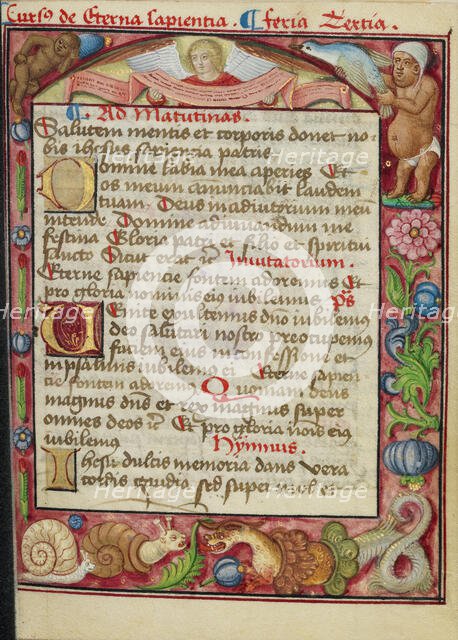 Cursus de Eterna sapientia. feria Tertia.
Ad Matutinas.
Salutem mentis et corporis donet no
bis ihesus sapiencia patris
Domine labia mea aperies Et
os meum annunciabit laudem
tuam Deus in adiutorium meu
intende Domine ad iuuandum me
festina Gloria patri et filio et spiritui
sancto Sicut erat Inuitatorium.
Eterne sapiencie fontem adoremus Et
pro gloria nominis eius iubilemus ps
Uenite exultemus dno iubilemus
deo salutari nostro preocupemus
faciem eius in confessione et
in psalmis iubilemus ei Eterne sapien
cie fontem adoremus Quoniam deus
magnus dns et rex magnus super
omnes deos Et pro gloria nois eius
iubilemus Hymnus.
Ihesu dulcis memoria dans vera
cordis gaudia sed super mel et
Heritage